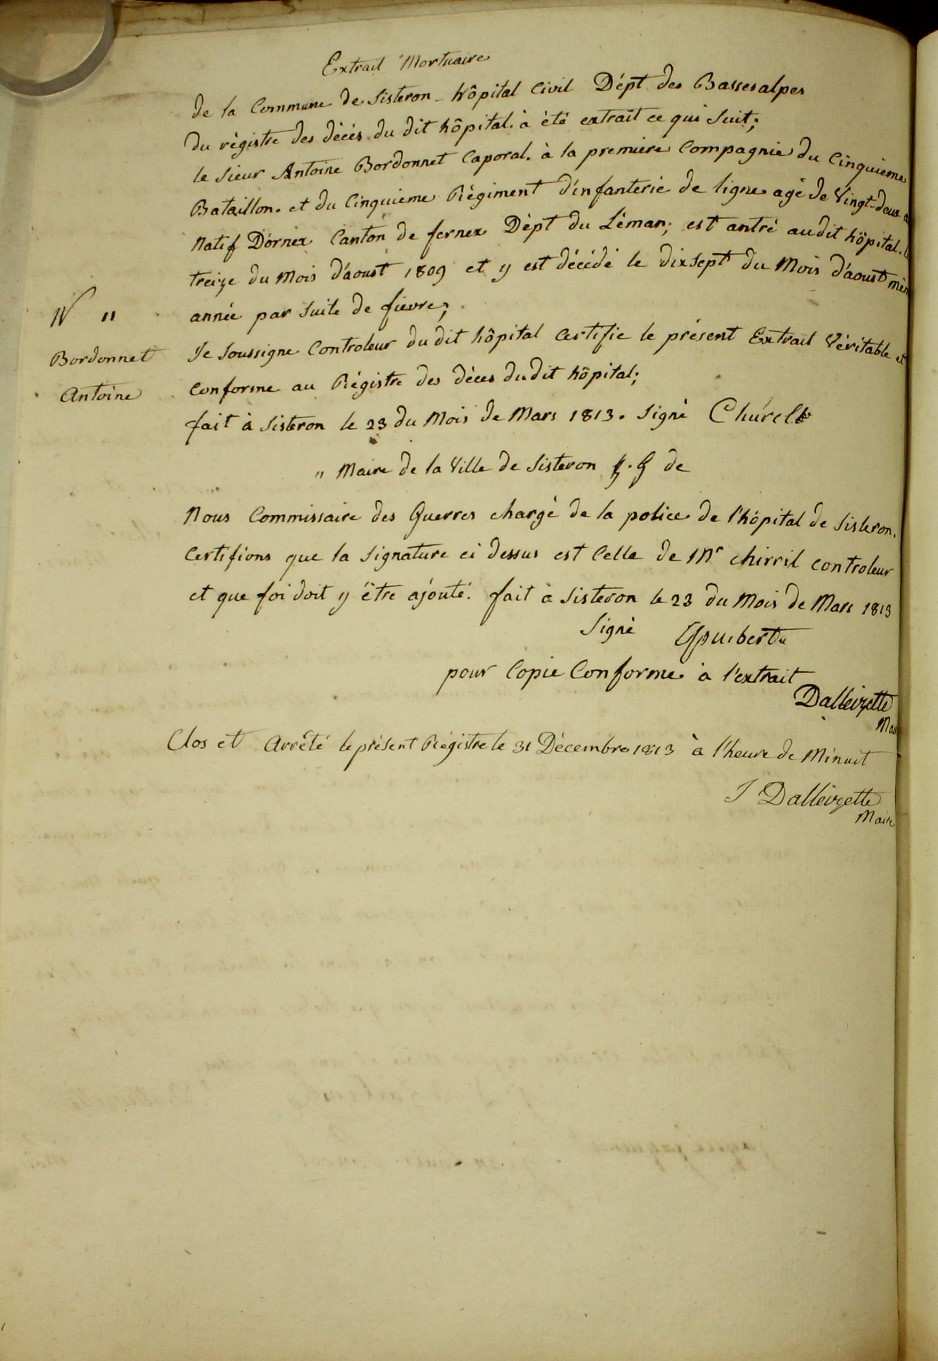 Extrait Mortuaire
de la Commune de Sisteron - hôpital Civil Dépt des Basses alpes
du règistre des décès du dit hôpital. à été extrait ce qui suit;
le Sieur Antoine Bordonnet Caporal. à la première Compagnie du Cinquieme
Bataillon. et du Cinquieme Règiment d'infanterie de ligne agé de Vingt-deux
Natif D'ornex Canton de fernex Dépt du Léman; est antré audit hôpital.
treize du Mois d'aoust 1809 et y est décédé le dixsept du Mois d'aoust
année par suite de fièvre;
N "
Bordonnet
Antoine
Je soussigne Controleur du dit hôpital Certifie le présent Extrait Véritable et
Conforme au Règistre des décès du dit hôpital;
fait à Sisteron le 23 du Mois de Mars 1813. Signè
" Maire de la Ville de Sisteron
Nous Commissaire des Guerres chargé de la police de l'hôpital de Sisteron.
Certifions que la Signature ci dessus est Celle de Mr chirril controleur
et que foi doit y être ajouté. fait à Sisteron le 23 du Mois de Mars 1813
Signè
pour Copie Conforme à l'extrait
Dalleizette
Clos et Arrêté le présent Règistre le 31 Décembre 1813 à l'heure de Minuit
J Dalleizette
Maire